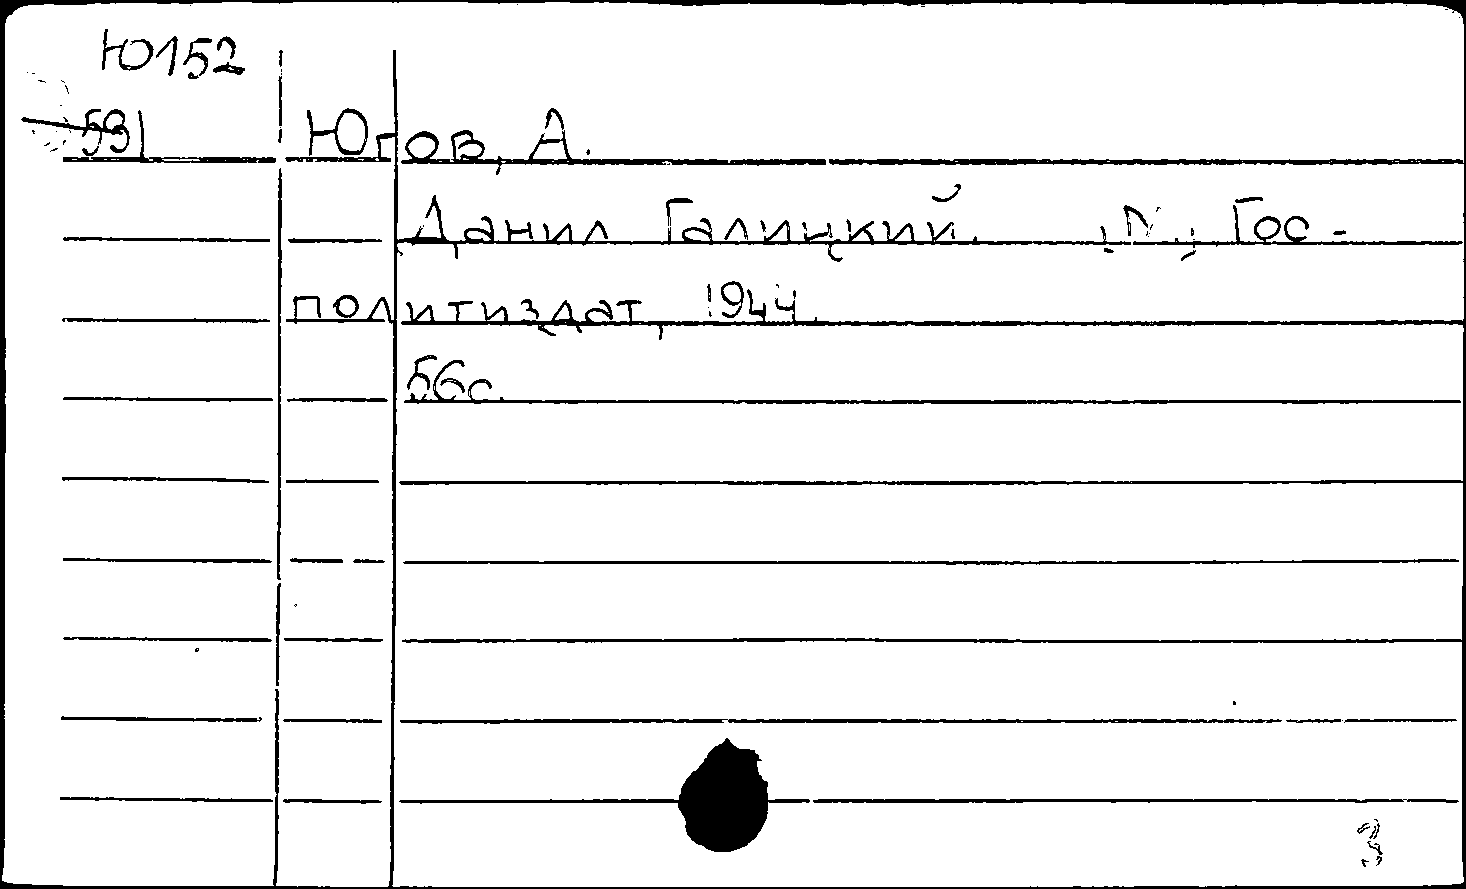 Ю152
591
Югов, А.
Данил Галицкий. М., Гос-
политиздат, 1944.
56с.
3